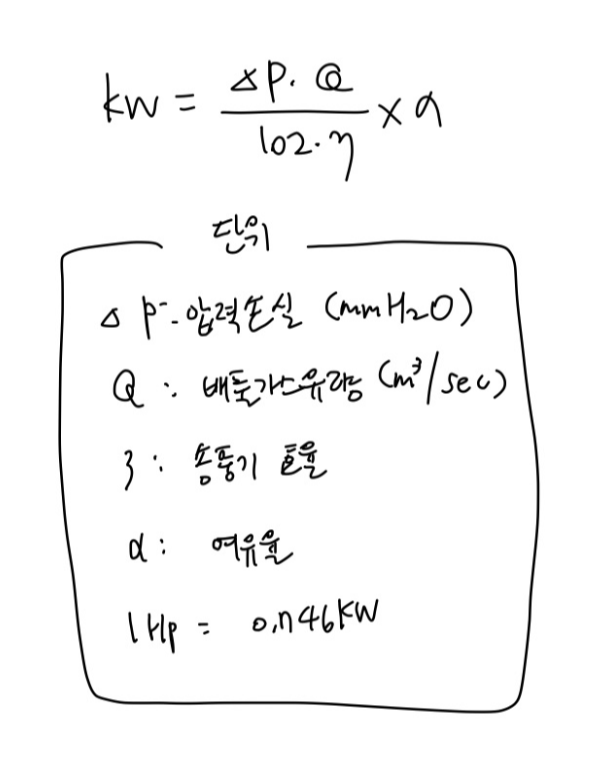 kW = ΔP. Q / 102.η × α
단위
Δ P : 압력손실 (mmH₂O)
Q : 배출가스유량 (m³/sec)
η : 송풍기 효율
α : 여유율
1 Hp = 0.746kW